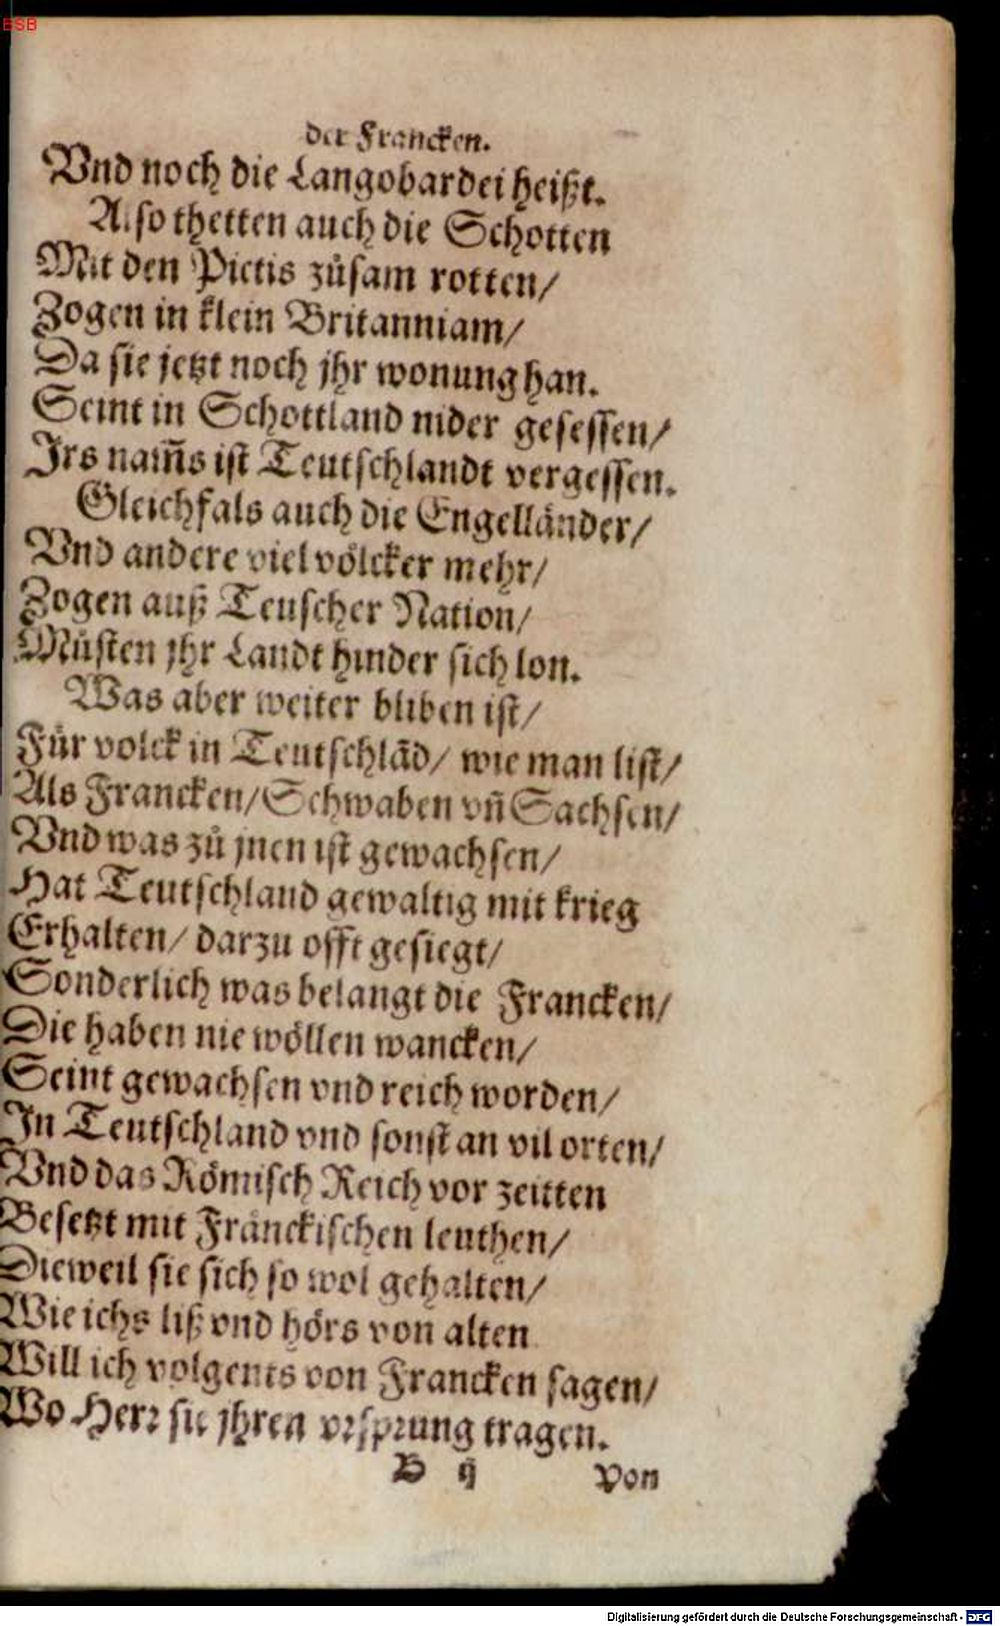 BSB
der Francken.
Vnd noch die Langobardei heißt.
Also thetten auch die Schotten
Mit den Pictis zůsam rotten/
Zogen in klein Britanniam/
Da sie jetzt noch jhr wonung han.
Seint in Schottland nider gesessen/
Irs nam̃s ist Teutschlandt vergessen.
Gleichfals auch die Engelländer/
Vnd andere viel völcker mehr/
Zogen auß Teuscher Nation/
Müsten jhr Landt hinder sich lon.
Was aber weiter bliben ist/
Für volck in Teutschlād/ wie man list/
Als Francken/ Schwaben vñ Sachsen/
Vnd was zů jnen ist gewachsen/
Hat Teutschland gewaltig mit krieg
Erhalten/ darzu offt gesiegt/
Sonderlich was belangt die Francken/
Die haben nie wöllen wancken/
Seint gewachsen vnd reich worden/
In Teutschland vnd sonst an vil orten/
Vnd das Römisch Reich vor zeitten
Besetzt mit Fränckischen leuthen/
Dieweil sie sich so wol gehalten/
Wie ichs liß vnd hörs von alten
Will ich volgents von Francken sagen/
Wo Herr sie jhren vrsprung tragen.
B ij Von
Digitalisierung gefördert durch die Deutsche Forschungsgemeinschaft - DFG